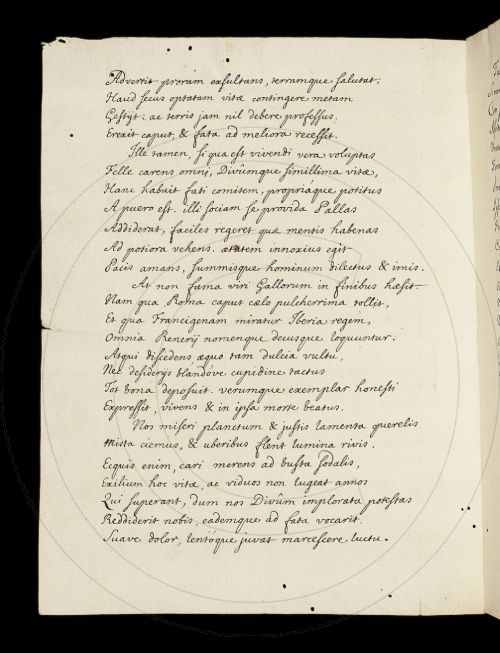 Advertit proram exsultans, terramque salutat;
Haud secus optatam vitæ contingere metam
Gestÿt: ac terris jam nil debere professus.
Erexit caput, & fata ad meliora recessit.
Ille tamen, si qua est vivendi vera voluptas
Felle carens omni, Divûmque simillima vitæ,
Hanc habuit fati comitem, propriâque potitus
A puero est. illi sociam se provida Pallas
Addiderat, faciles regeret quæ mentis habenas
Ad potiora vehens. ætatem innoxius egit
Pacis amans, summisque hominum dilectus & imis.
At non fama viri Gallorum in finibus hæsit
Nam qua Roma caput cælo pulcherrima tollit,
Et qua Francigenam miratur Iberia regem,
Omnia Renerij nomenque decusque loquuntur.
Atqui discedens æquo tam dulcia vultu,
Nec desiderÿs blandóve cupidine tactus
Tot bona deposuit. verumque exemplar honesti
Expressit, vivens & in ipsa morte beatus.
Nos miseri planctum & justis lamenta querelis
Mista ciemus, & uberibus flent lumina rivis.
Ecquis enim, cari merens ad busta sodalis,
Exilium hoc vitæ, ac viduos non lugeat annos
Qui superant, dum nos Divûm implorata potestas
Reddiderit nobis, eademque ad fata vocarit.
Suave dolor, lentóque juvat marcescere luctu.